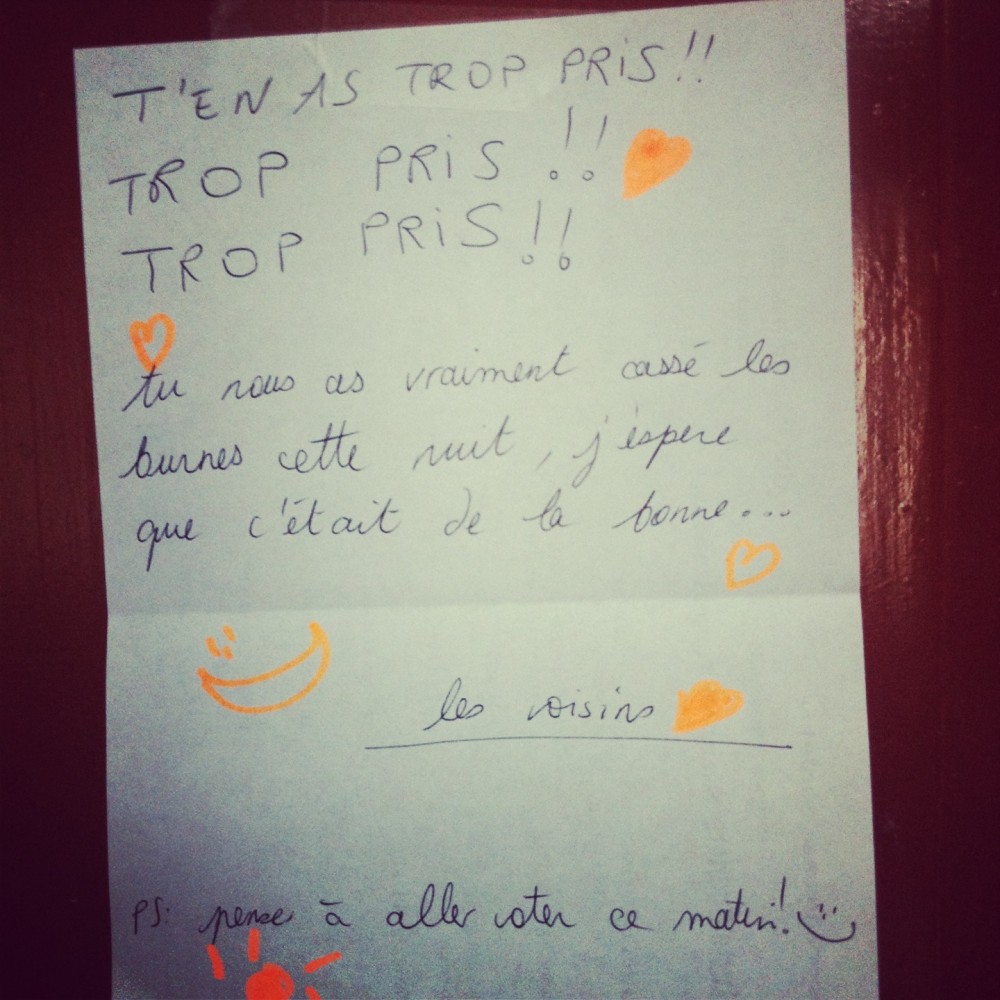 T'EN AS TROP PRiS!!
TROP PRiS!!
TROP PRiS!!
tu nous as vraiment cassé les
burnes cette nuit, j'éspere
que c'était de la bonne...
les voisins
PS: pense à aller voter ce matin!